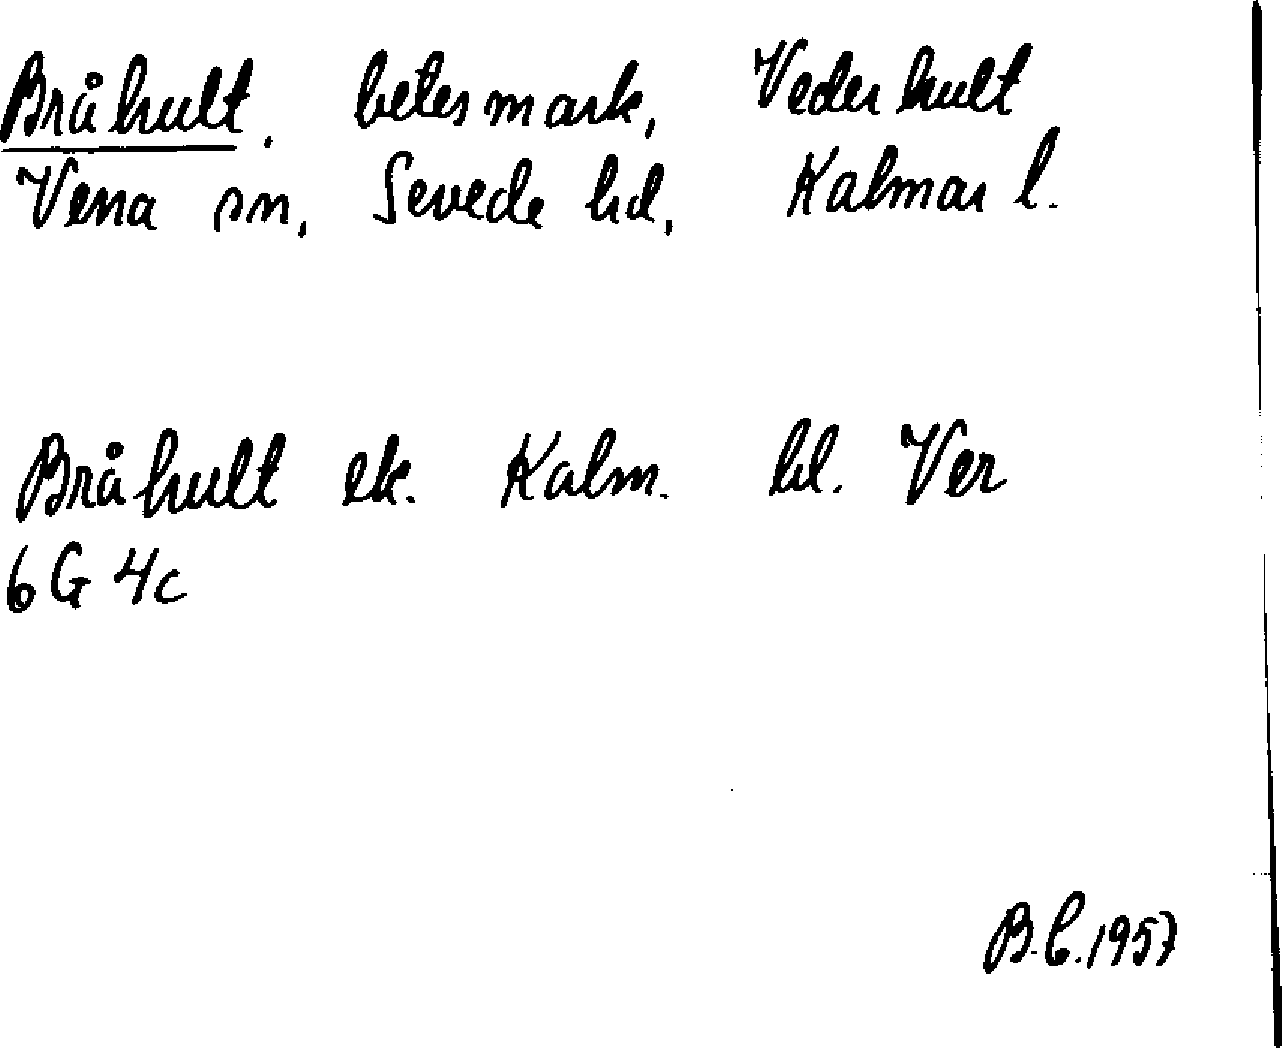 Bråhult. betesmark, Vederhult
Vena sn, Sevede hd, Kalmar l.
Bråhult ek. Kalm. bl. Ver
6G 4c
B.C. 1957